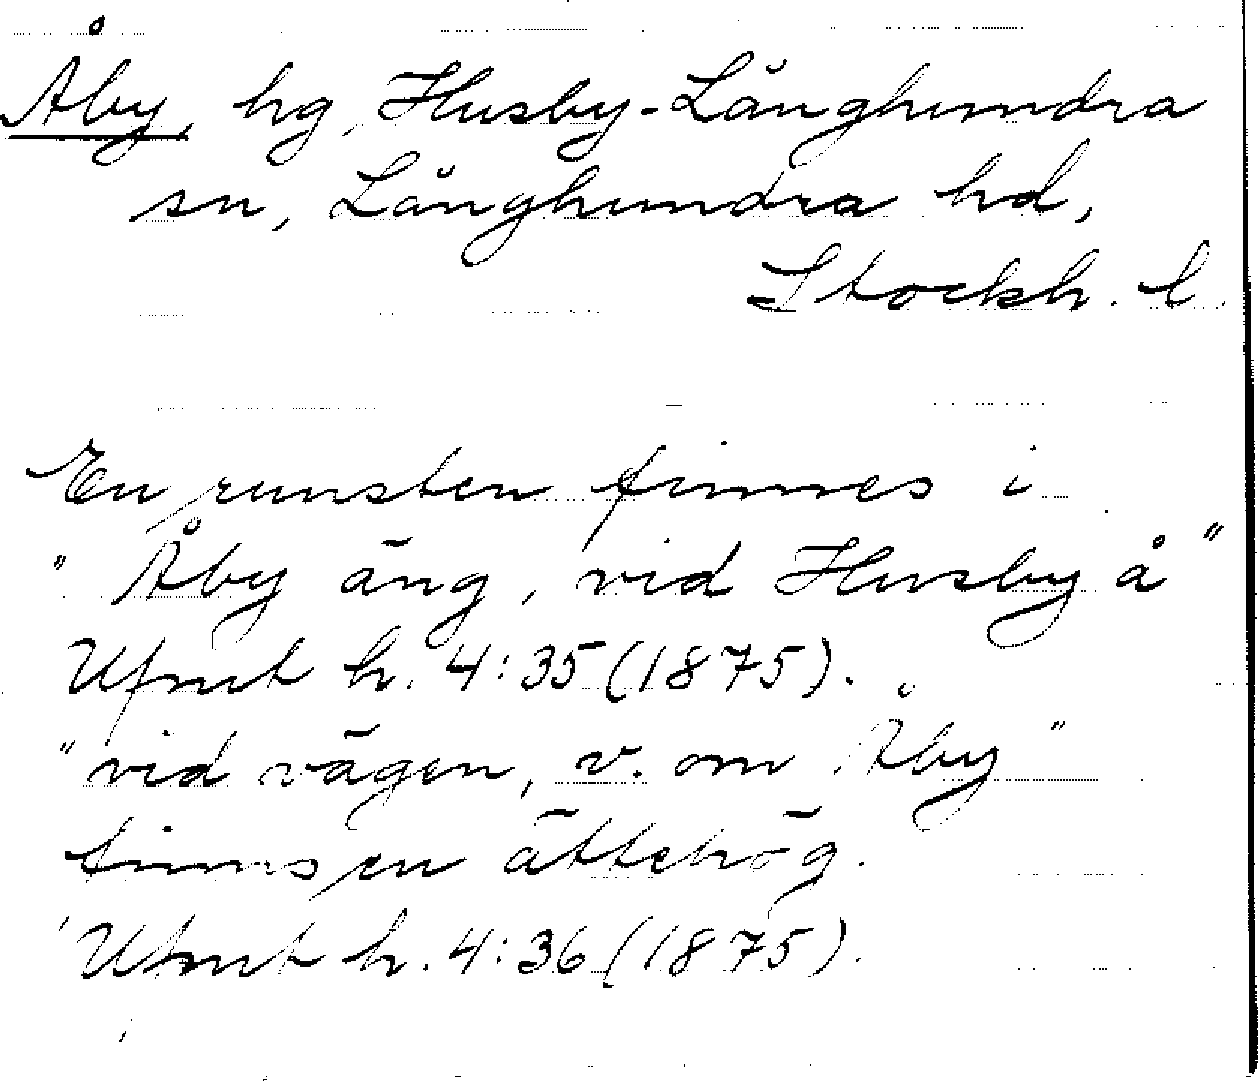 Åby, hg, Husby-Långhundra
sn, Långhundra hd,
Stockh. l.
En runsten finnes i
" Åby äng, vid Husby å "
Ufmt h. 4:35 (1875).
"vid vägen, v. om Åby"
finns en ättehög.
Ufmt h. 4:36 (1875).